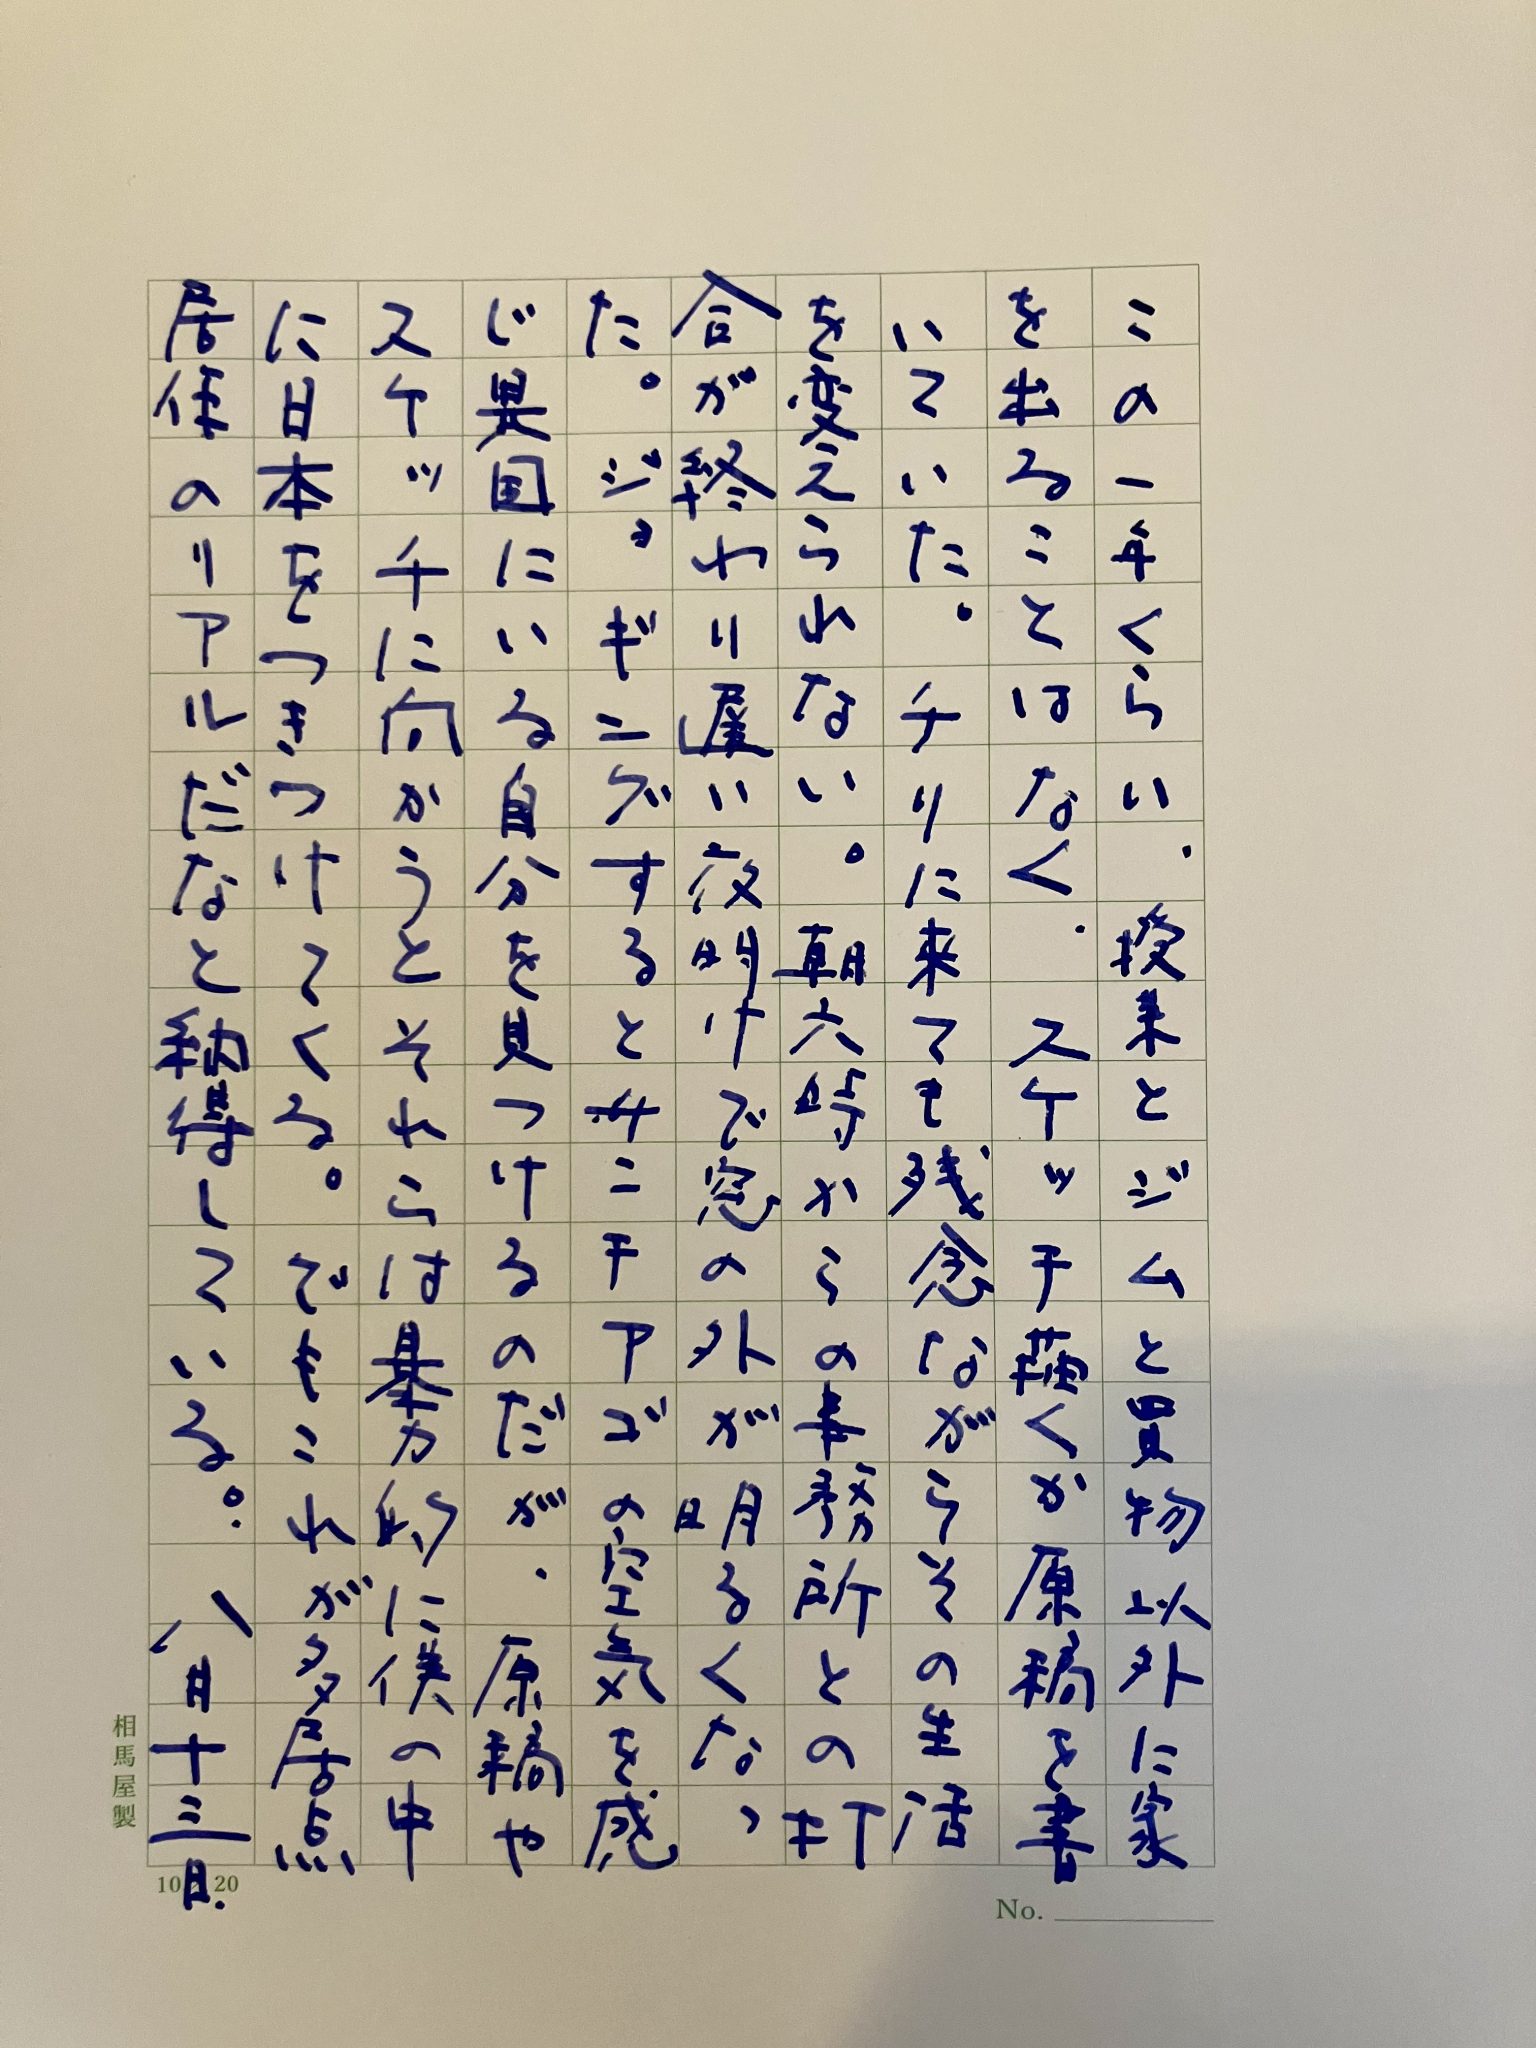 この一年くらい、授業とジムと買物以外に家
を出ることはなく、スケッチ描くか原稿を書
いていた。チリに来ても残念ながらその生活
を変えられない。朝六時からの事務所との打
合が終わり遅い夜明けで窓の外が明るくなっ
た。ジョギングするとサンチアゴの空気を感
じ異国にいる自分を見つけるのだが、原稿や
スケッチに向かうとそれらは暴力的に僕の中
に日本をつきつけてくる。でもこれが多居点
居住のリアルだなと納得している。八月十三日.
相馬屋製
10 20
No.